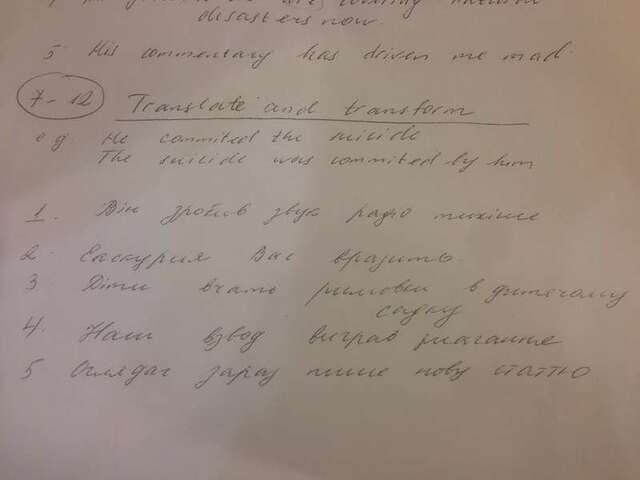 disasters now.
5 His commentary has driven me mad.
7-12 Translate and transform
e g He commited the suicide
The suicide was commited by him
1. Він зробив звук радіо тихіше
2 Екскурсія Вас вразить.
3 Діти вчать римовки в дитячому
садку
4. Наш взвод виграв змагання
5 Оглядач зараз пише нову статтю